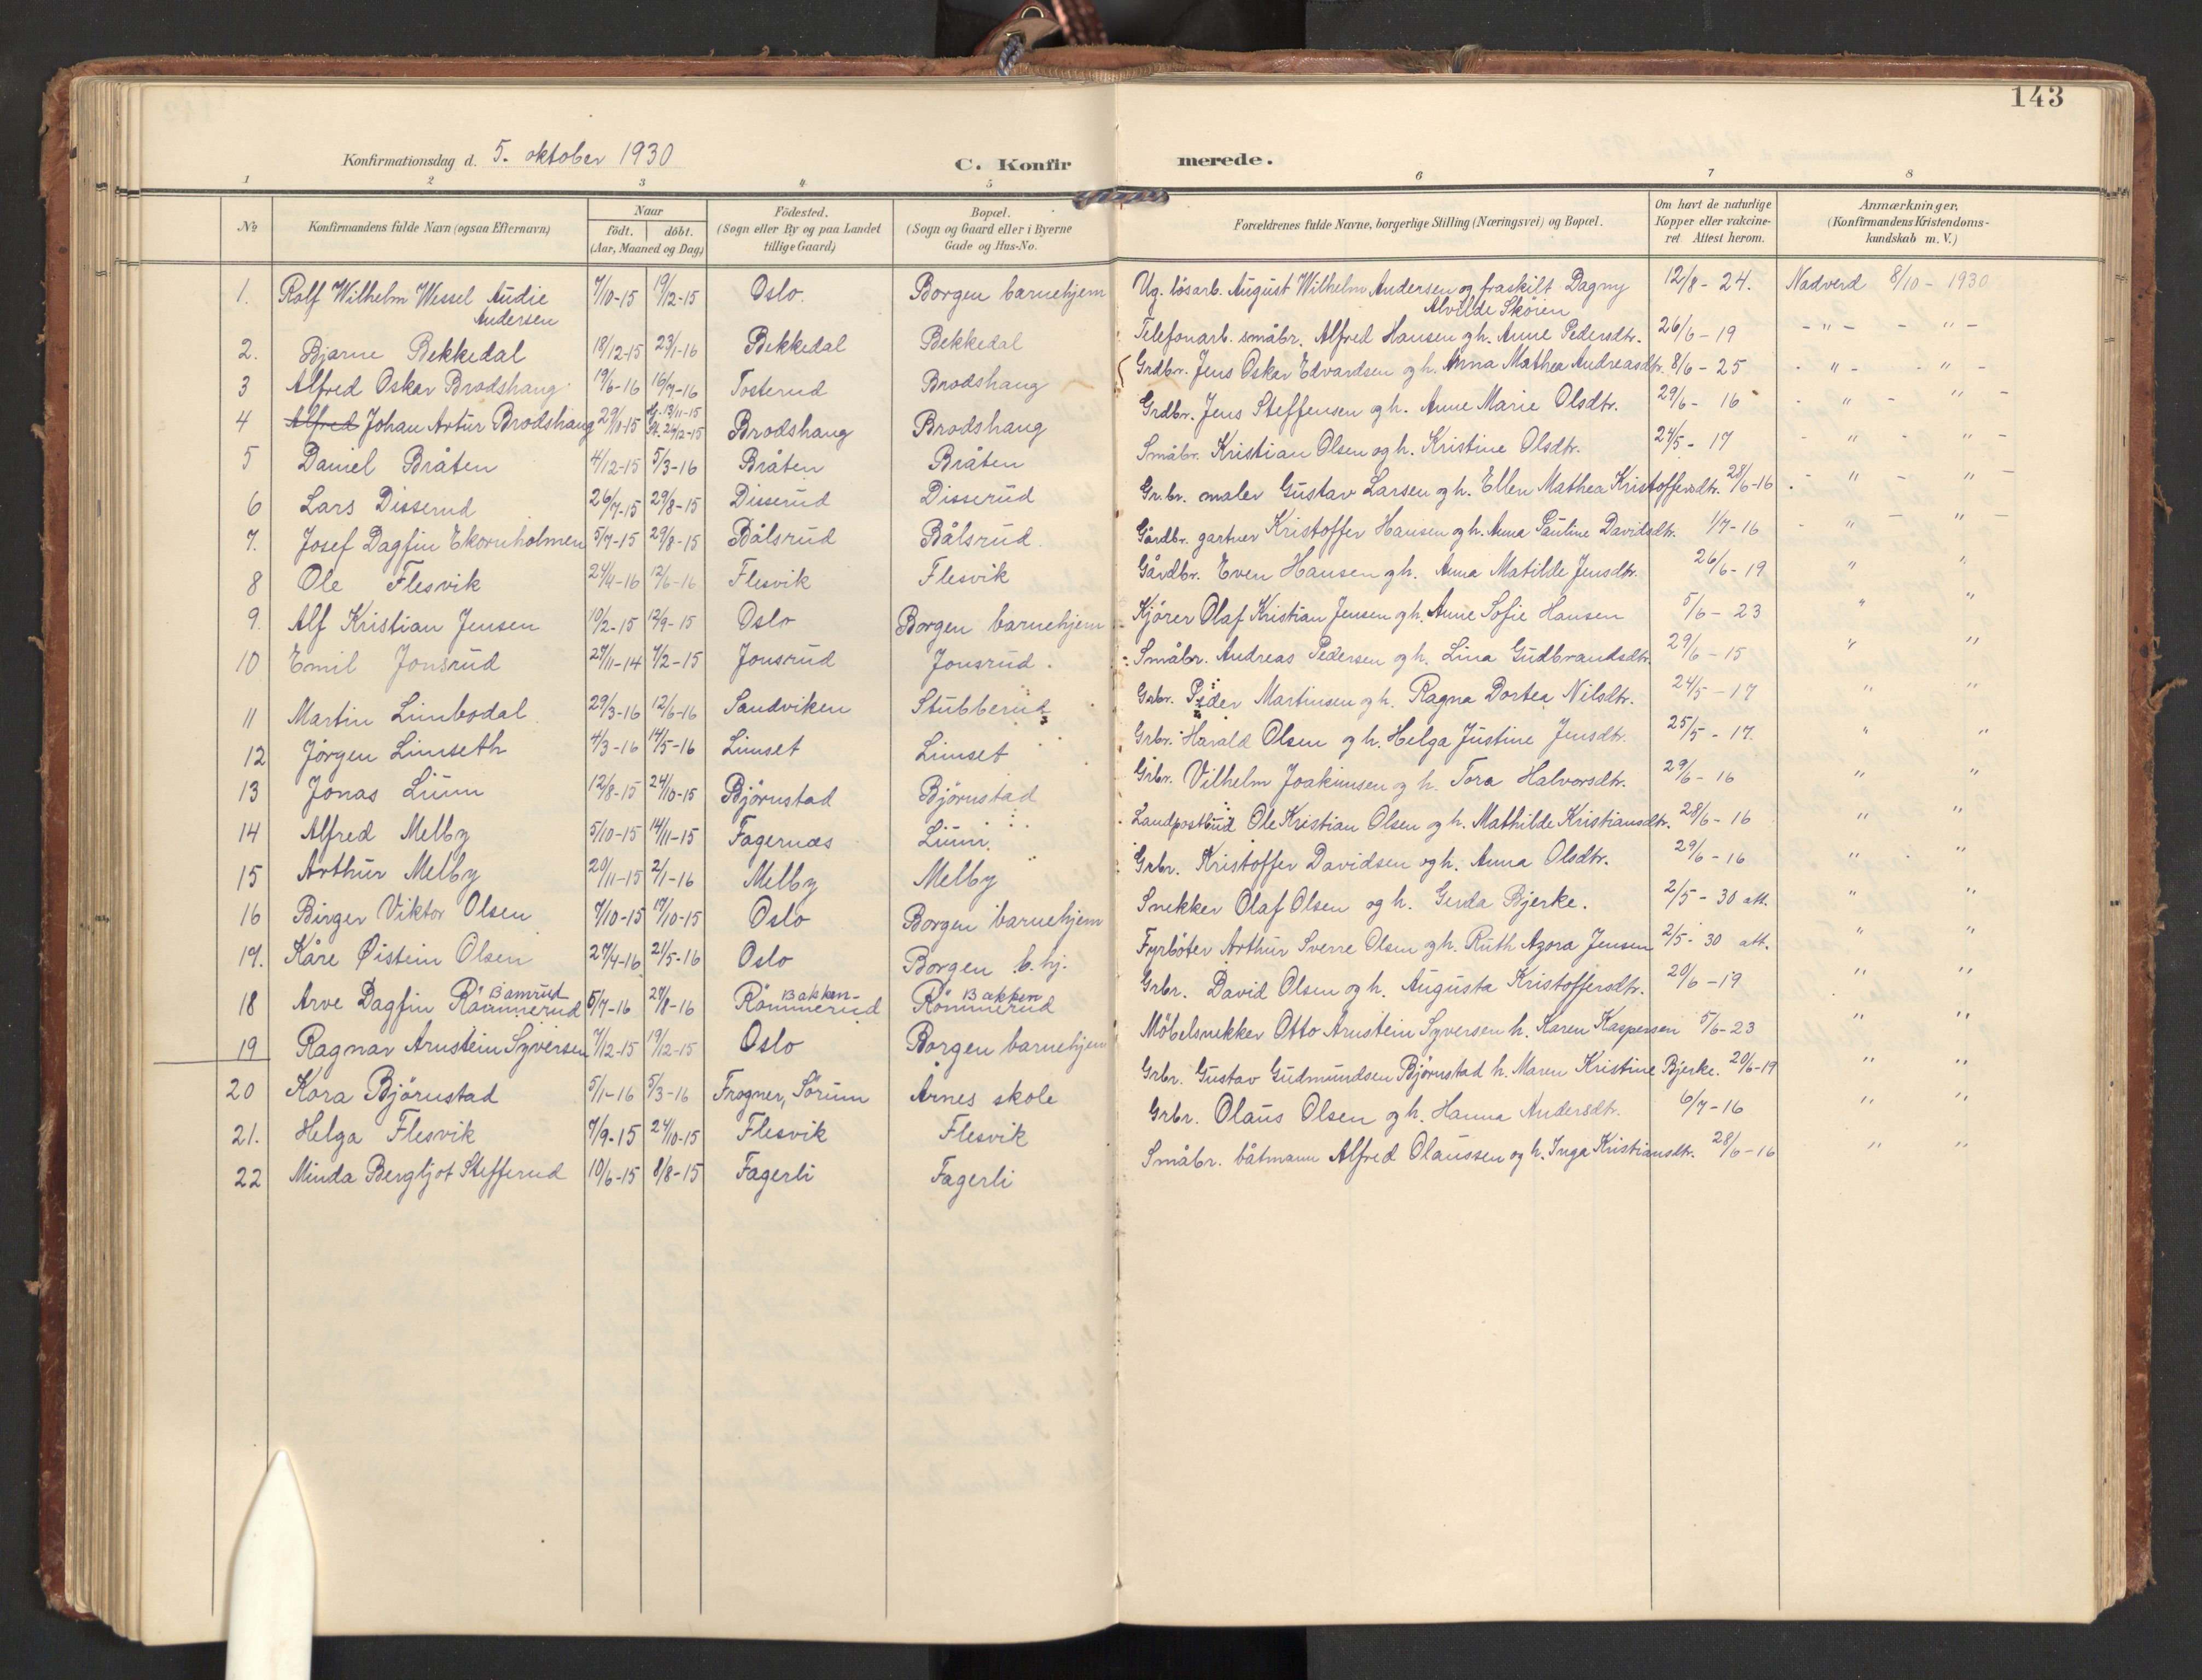 143
Konfirmationsdag d. 5. oktober 1930 C. Konfirmerede.
1 2 3 4 5 6 7 8
No Konfirmandens fulde Navn (ogsaa Efternavn) Naar Födt. döbt. (Aar, Maaned og Dag) Födested. (Sogn eller By og paa Landet tillige Gaard) Bopæl. (Sogn og Gaard eller i Byerne Gade og Hus-No. Forældrenes fulde Navne, borgerlige Stilling (Næringsvei) og Bopæl. Om havt de naturlige Kopper eller vakcineret Attest herom. Anmærkninger. (Konfirmandens Kristendomskundskab m. V.)
1. Rolf Wilhelm Wessel Audie Andersen 7/10-15 19/12-15 Oslo. Borgen barnehjem Ug. lösarb. August Wilhelm Andersen og fraskilt Dagny Alvilde Sköien 12/8-24. Nadverd 8/10-1930
2. Bjarne Bekkedal 18/12-15 23/1-16 Bekkedal Bekkedal Telefonarb. småbr. Alfred Hansen og h. Anne Pedersdtr. 26/6-19 -"- -"-
3 Alfred Oskar Brodshaug 19/6-16 16/7-16 Tosterud Brodshaug Grdbr. Jens Oskar Edvardsen og h. Anna Mathea Andreasdtr. 8/6-25 -"- -"-
4 Alfred Johan Artur Brodshaug 29/10-15 13/11-15 26/12-15 Brodshaug Brodshaug Grdbr. Jens Steffensen og h. Anne Marie Olsdtr. 29/6-16 -"- "-
5 Daniel Bråten 4/12-15 5/3-16 Bråten Bråten Småbr. Kristian Olsen og h. Kristine Olsdtr. 24/5-17 -"- "-
6 Lars Disserud 26/7-15 29/8-15 Disserud Disserud Gr.br. maler Gustav Larsen og h. Ellen Mathea Kristoffersdtr. 28/6-16 -"- "-
7. Josef Dagfin Ekornholmen 5/7-15 29/8-15 Bålsrud Bålsrud. Gårdbr. gartner Kristoffer Hansen og h. Anna Pauline Davidsdtr. 1/7-16 -"- "-
8 Ole Flesvik 24/4-16 12/6-16 Flesvik Flesvik Gårdbr. Even Hansen og h. Anna Matilde Jensdtr. 26/6-19 " "
9. Alf Kristian Jensen 10/2-15 12/9-15 Oslo Borgen barnehjem Kjörer Olaf Kristian Jensen og h. Anne Sofie Hansen 5/6-23 " "
10 Emil Jonsrud 27/11-14 7/2-15 Jonsrud Jonsrud. Småbr. Andreas Pedersen og h. Lina Gudbrandsdtr. 29/6-15 " "
11 Martin Limbodal 29/3-16 12/6-16 Sandviken Stubberud Grbr. Peder Martinsen og h. Ragna Dortea Nilsdtr. 24/5-17 " "
12 Jörgen Limseth 4/3-16 14/5-16 Limset Limset Grbr. Harald Olsen og h. Helga Justine Jensdtr. 25/5-17. " "
13 Jonas Lium 12/8-15 24/10-15 Björnstad Björnstad Grbr. Vilhelm Joakimsen og h. Tora Halvorsdtr. 29/6-16 " "
14 Alfred Melby 5/10-15 14/11-15 Fagernæs Lium. Landpostbud Ole Kristian Olsen og h. Mathilde Kristiansdtr. 28/6-16 " "
15 Arthur Melby 20/11-15 2/1-16 Melby Melby Grbr. Kristoffer Davidsen og h. Anna Olsdtr. 29/6-16 " "
16 Birger Viktor Olsen 7/10-15 17/10-15 Oslo Borgen barnehjem Snekker Olaf Olsen og h. Gerda Bjerke. 2/5-30 att. " "
17. Kåre Øistein Olsen 27/4-16 21/5-16 Oslo Borgen b.hj. Fyrböter Arthur Sverre Olsen og h. Ruth Azora Jensen 2/5-30 att. " "
18 Arve Dagfin Römmerud Bamrud 5/7-16 27/8-16 Römmerud Bakken- Römmerud Bakken Grbr. David Olsen og h. Augusta Kristoffersdtr. 20/6-19 " "
19 Ragnar Arnstein Syversen 7/12-15 19/12-15 Oslo Borgen barnehjem Möbelsnekker Otto Arnstein Syversen h. Karen Kaspersen 5/6-23 " "
20 Kora Björnstad 5/1-16 5/3-16 Frogner, Sörum Årnes skole Grbr. Gustav Gudmundsen Björnstad h. Maren Kristine Bjerke. 20/6-19 " "
21. Helga Flesvik 7/9-15 24/10-15 Flesvik Flesvik Grbr. Olaus Olsen og h. Hanna Andersdtr. 6/7-16 " "
22 Minda Bergljot Stefferud 10/6-15 8/8-15 Fagerli Fagerli Småbr. båtmann Alfred Olaussen og h. Inga Kristiansdtr. 28/6-16 " "